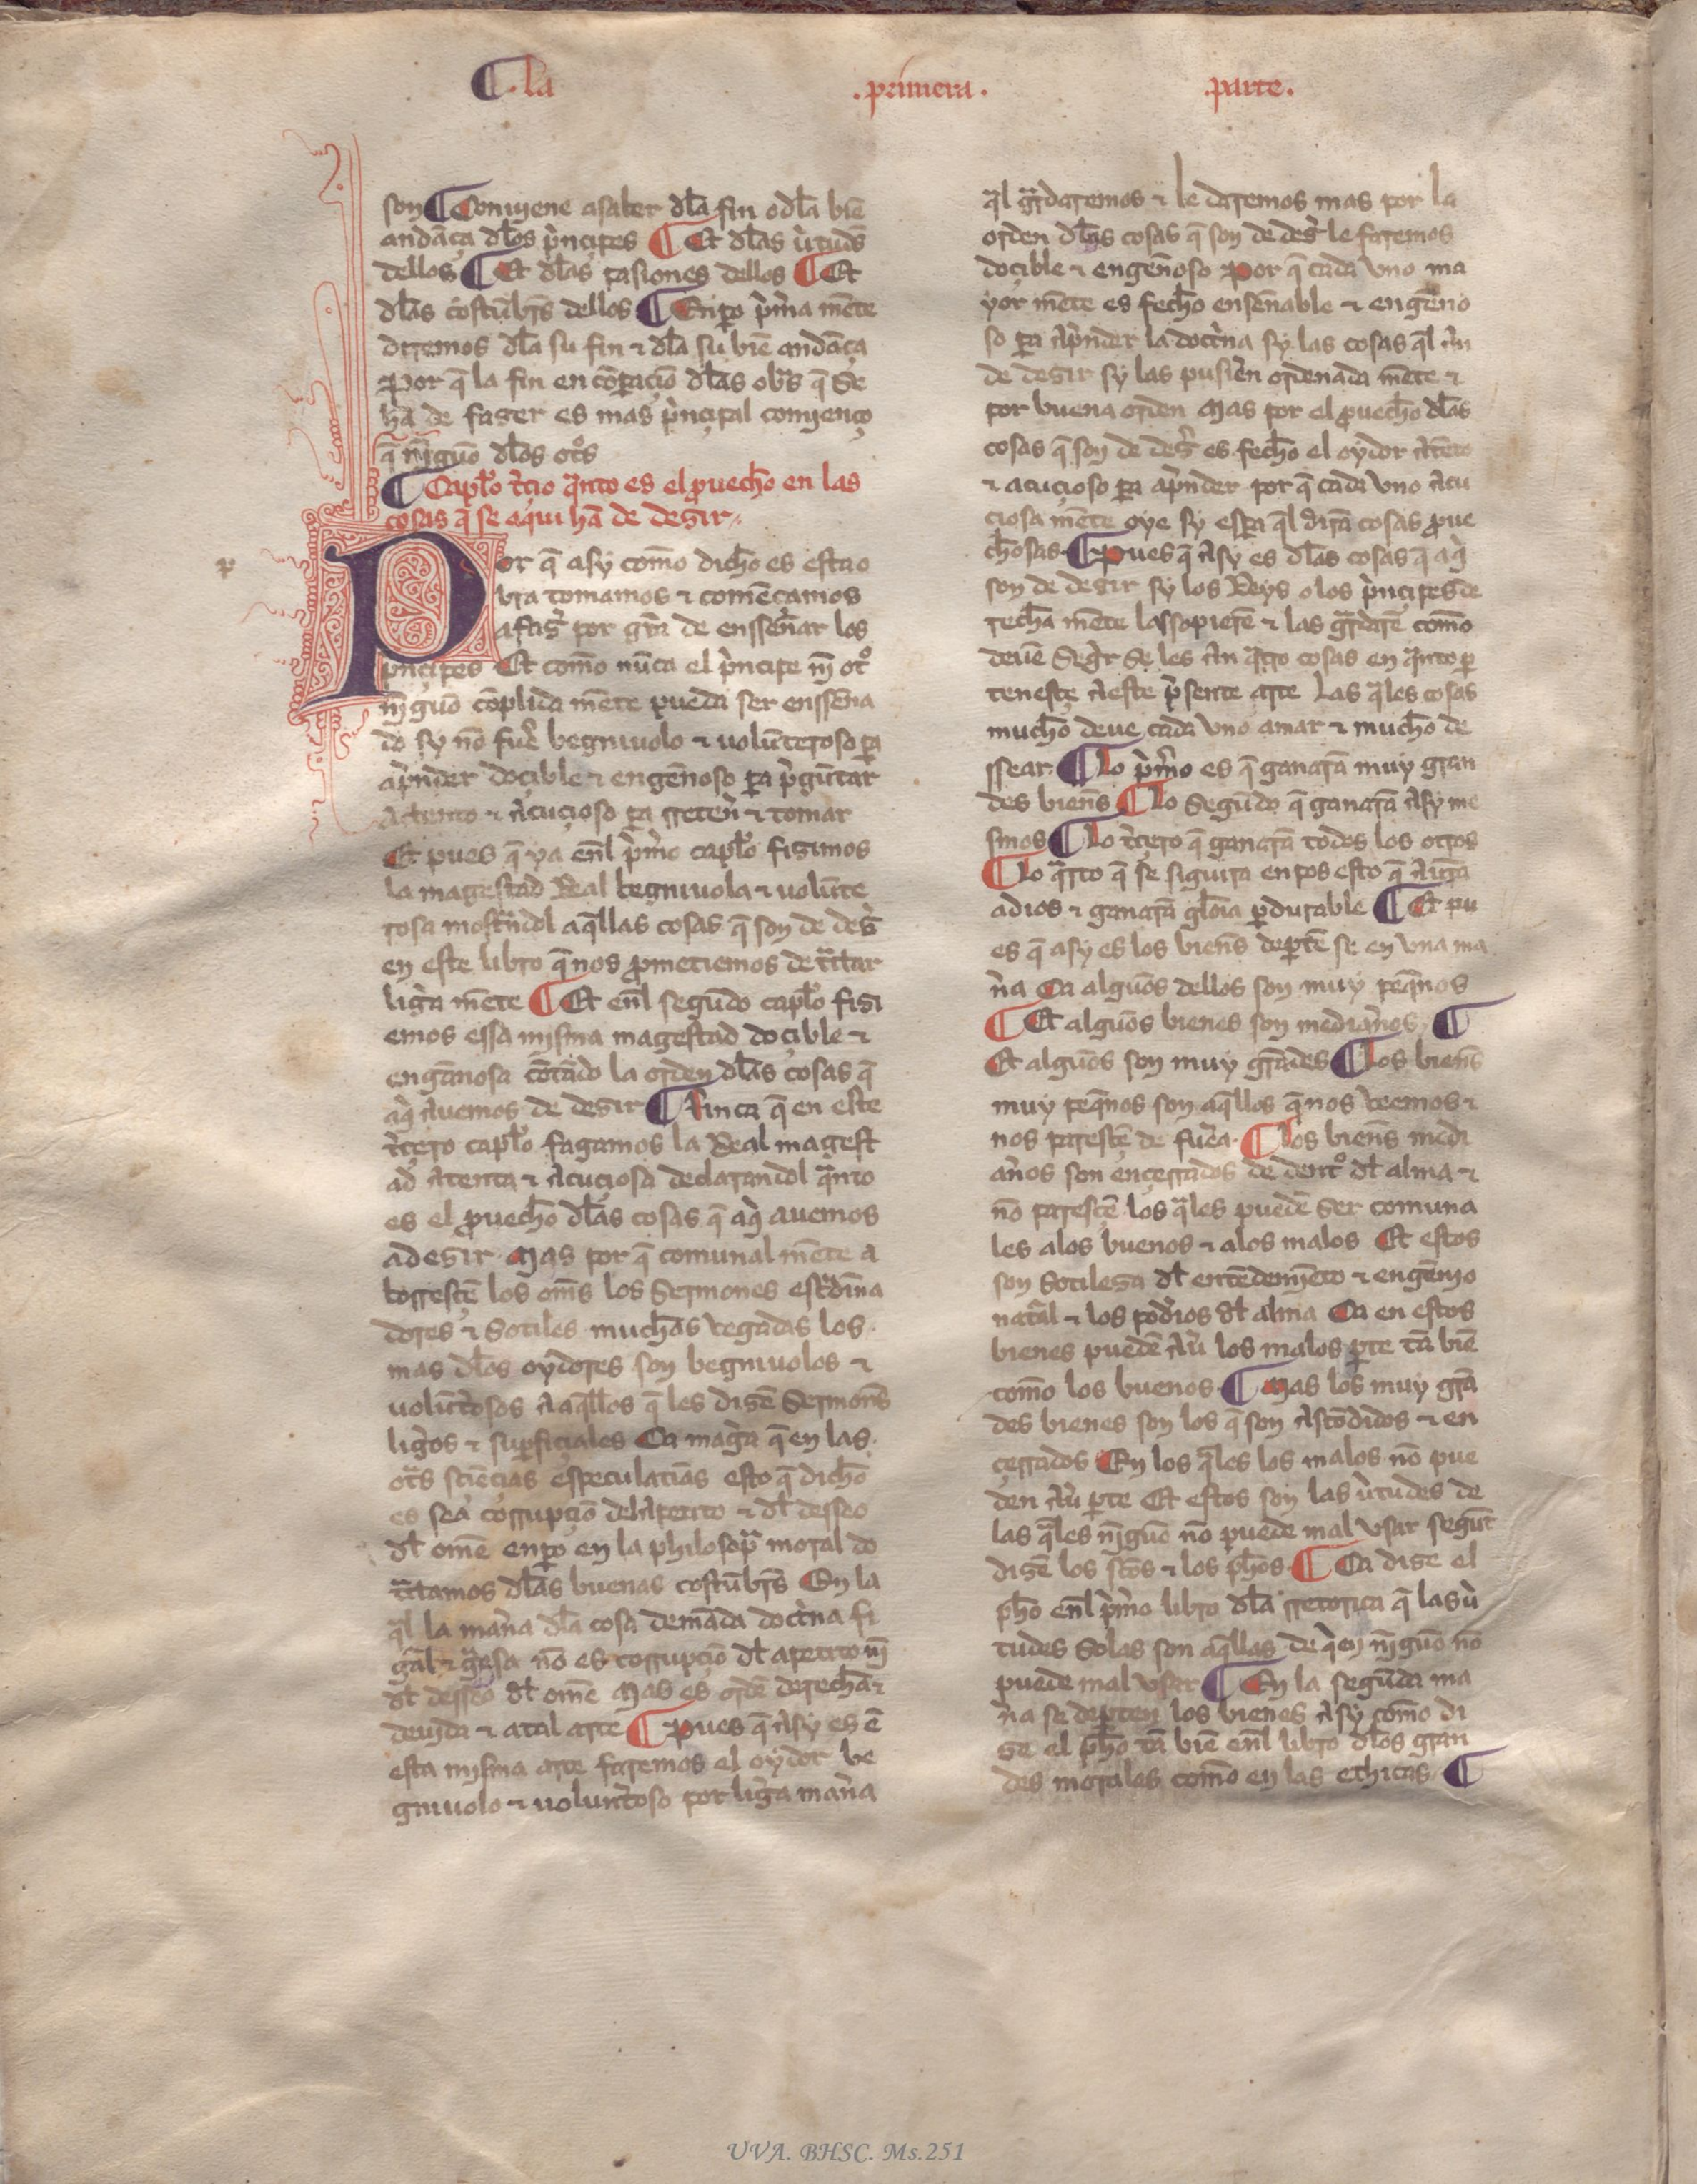 ¶ . la . primera . parte .
son ¶ Conuiene asaber dla fin o dla biẽ
andãça dlos prinçipes ¶ Et dlas uirtuds
dellos ¶ Et dlas pasiones dellos ¶ Et
dlas costũbrs dellos ¶ Enpo prima mẽte
diremos dla su fin & dla su biẽ andãça
Por q̃ la fin en cõparaçiõ dlas obrs q̃ se
hã de faser es mas prinçipal comienço
q̃ niguõ dlos otrs
¶ Caplo terçio qanto es el prouecho en las
cosas q̃ se aqui hã de desir
Por q̃ asy como dicho es esta o
bra tomamos & comẽçamos
a faser por gra de ensseñar los
prinçipes Et como nũca el prinçipe nĩ otro
nĩguõ cõplida mẽte pueda ser ensseña
do sy nõ fuer begniuolo & uolũteroso pa
aprnder doçible & engeñoso pa pregũtar
Atento & acuçioso pa rretener & tomar
Et pues q̃ ya enl primo caplo fisimos
la magestad Real begniuola & uolũte
rosa mostrandol aq̃llas cosas q̃ son de desir
en este libro q̃ nos prometiemos de tratar
ligera mẽte ¶ Et enl segũdo caplo fisi
emos essa misma magestad doçible &
engañosa cõtado la orden dlas cosas q̃
aqi auemos de desir ¶ Finca q̃ en este
terçero caplo fagamos la Real magest
ad atenta & acuçiosa declarandol qanto
es el prouecho dlas cosas q̃ aqi auemos
a desir Mas por q̃ comunal mẽte a
borresçẽ los oms los Sermones
dores & Sotiles muchas vegadas los
mas dlos oydores son begniuolos &
uolũtosos a aq̃llos q̃ les disẽ Sermons
ligeros & superfiçiales Ca magera q̃ en las
otrs sçiẽçias especulatias esto q̃ dicho
es sea corrupçiõ del apetito & dl desseo
dl omẽ enpo en la philosopia moral do
tratamos dlas buenas costũbrs En la
qal la manera dla cosa demãda doctrina fi
gural & gruesa nõ es corrupçiõ dl apetito nĩ
dl desseo dl omẽ Mas es ordẽ derecha &
deuida & atal arte ¶ Pues q̃ asy es ẽ
esta misma arte faremos el oydor be
gniuolo & uoluntoso por ligera manera
qal guardaremos & le daremos mas por la
orden dlas cosas q̃ son de desir le faremos
doçible & engeñoso Por q̃ cada vno ma
yor mẽte es fecho enseñable & engeño
so pa aprnder la doctrina sy las cosas qal an
de desir sy las pusierẽ ordenada mẽte &
por buena orden Mas por el prouecho dlas
cosas q̃ son de desir es fecho el oydor atẽto
& acuçioso pa aprnder por q̃ cada vno acu
çiosa mẽte oye sy espa qal dirã cosas proue
chosas ¶ Pues q̃ asy es dlas cosas q̃ aqi
son de desir sy los Reys o los prinçipes de
recha mẽte las sopierẽ & las guardarẽ como
deuẽ Segir se les an qatro cosas en qanto p
tenesçe a este prsente arte Las qales cosas
mucho deue cada vno amar & mucho de
ssear ¶ Lo primo es q̃ ganarã muy gran
des biens ¶ Lo segũdo q̃ ganarã asy me
smos ¶ Lo terçero q̃ ganarã todos los otros
¶ Lo qarto q̃ se siguira en pos esto q̃ aurã
a dios & ganarã gloia perdurable ¶ Et pu
es q̃ asy es los biens depártẽ se en vna ma
nera Ca alguõs dellos son muy peqños
¶ Et alguõs bienes son medianos ¶
Et alguõs son muy grãdes ¶ Los biens
muy peqños son aq̃llos q̃ nos veemos &
nos paresçẽ de fuera ¶ Los biens medi
anos son ençerrados de dentro dl alma &
nõ paresçẽ los qales puedẽ ser comuna
les a los buenos & a los malos Et estos
son Sotilesa dl entẽdemiẽto & engeñio
natural & los poderios dl alma Ca en estos
bienes puedẽ auer los malos parte tã biẽ
como los buenos ¶ Mas los muy grã
des bienes son los q̃ son ascõdidos & en
çerrados En los qales los malos nõ pue
den auer parte Et estos son las uirtudes de
las qales nĩguõ nõ puede mal vsar segunt
disẽ los sctos & los phos ¶ Ca dise el
pho enl primo libro dla rretorica q̃ las uir
tudes solas son aq̃llas de qien nĩguõ nõ
puede mal vsar ¶ En la segũda ma
nera se departen los bienes asy como di
se el pho tã biẽ enl libro dlos gran
des morales como en las ethicas ¶
UVA. BHSC. Ms.251